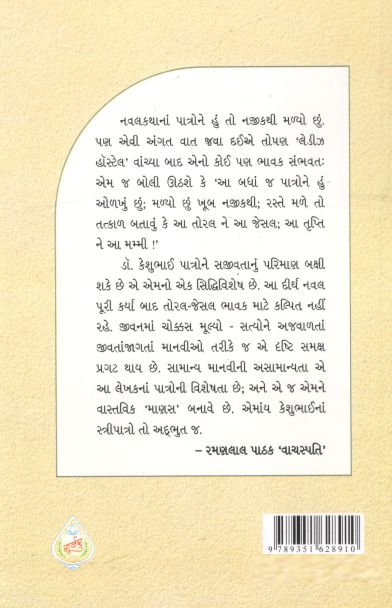 નવલકથાનાં પાત્રોને હું તો નજીકથી મળ્યો છું.
પણ એવી અંગત વાત જવા દઈએ તોપણ ‘લેડીઝ
હૉસ્ટેલ’ વાંચ્યા બાદ એનો કોઈ પણ ભાવક સંભવતઃ
એમ જ બોલી ઊઠશે કે ‘આ બધાં જ પાત્રોને હું
ઓળખું છું; મળ્યો છું ખૂબ નજીકથી; રસ્તે મળે તો
તત્કાળ બતાવું કે આ તોરલ ને આ જેસલ; આ તૃપ્તિ
ને આ મમ્મી !’
ડૉ. કેશુભાઈ પાત્રોને સજીવતાનું પરિમાણ બક્ષી
શકે છે એ એમનો એક સિદ્ધિવિશેષ છે. આ દીર્ઘ નવલ
પૂરી કર્યા બાદ તોરલ-જેસલ ભાવક માટે કલ્પિત નહીં
રહે. જીવનમાં ચોક્કસ મૂલ્યો - સત્યોને અજવાળતાં
જીવતાંજાગતાં માનવીઓ તરીકે જ એ દૃષ્ટિ સમક્ષ
પ્રગટ થાય છે. સામાન્ય માનવીની અસામાન્યતા એ
આ લેખકનાં પાત્રોની વિશેષતા છે; અને એ જ એમને
વાસ્તવિક ‘માણસ’ બનાવે છે. એમાંય કેશુભાઈનાં
સ્ત્રીપાત્રો તો અદ્ભુત જ.
– રમણલાલ પાઠક ‘વાચસ્પતિ’
ગૂર્જર
9 789351 628910